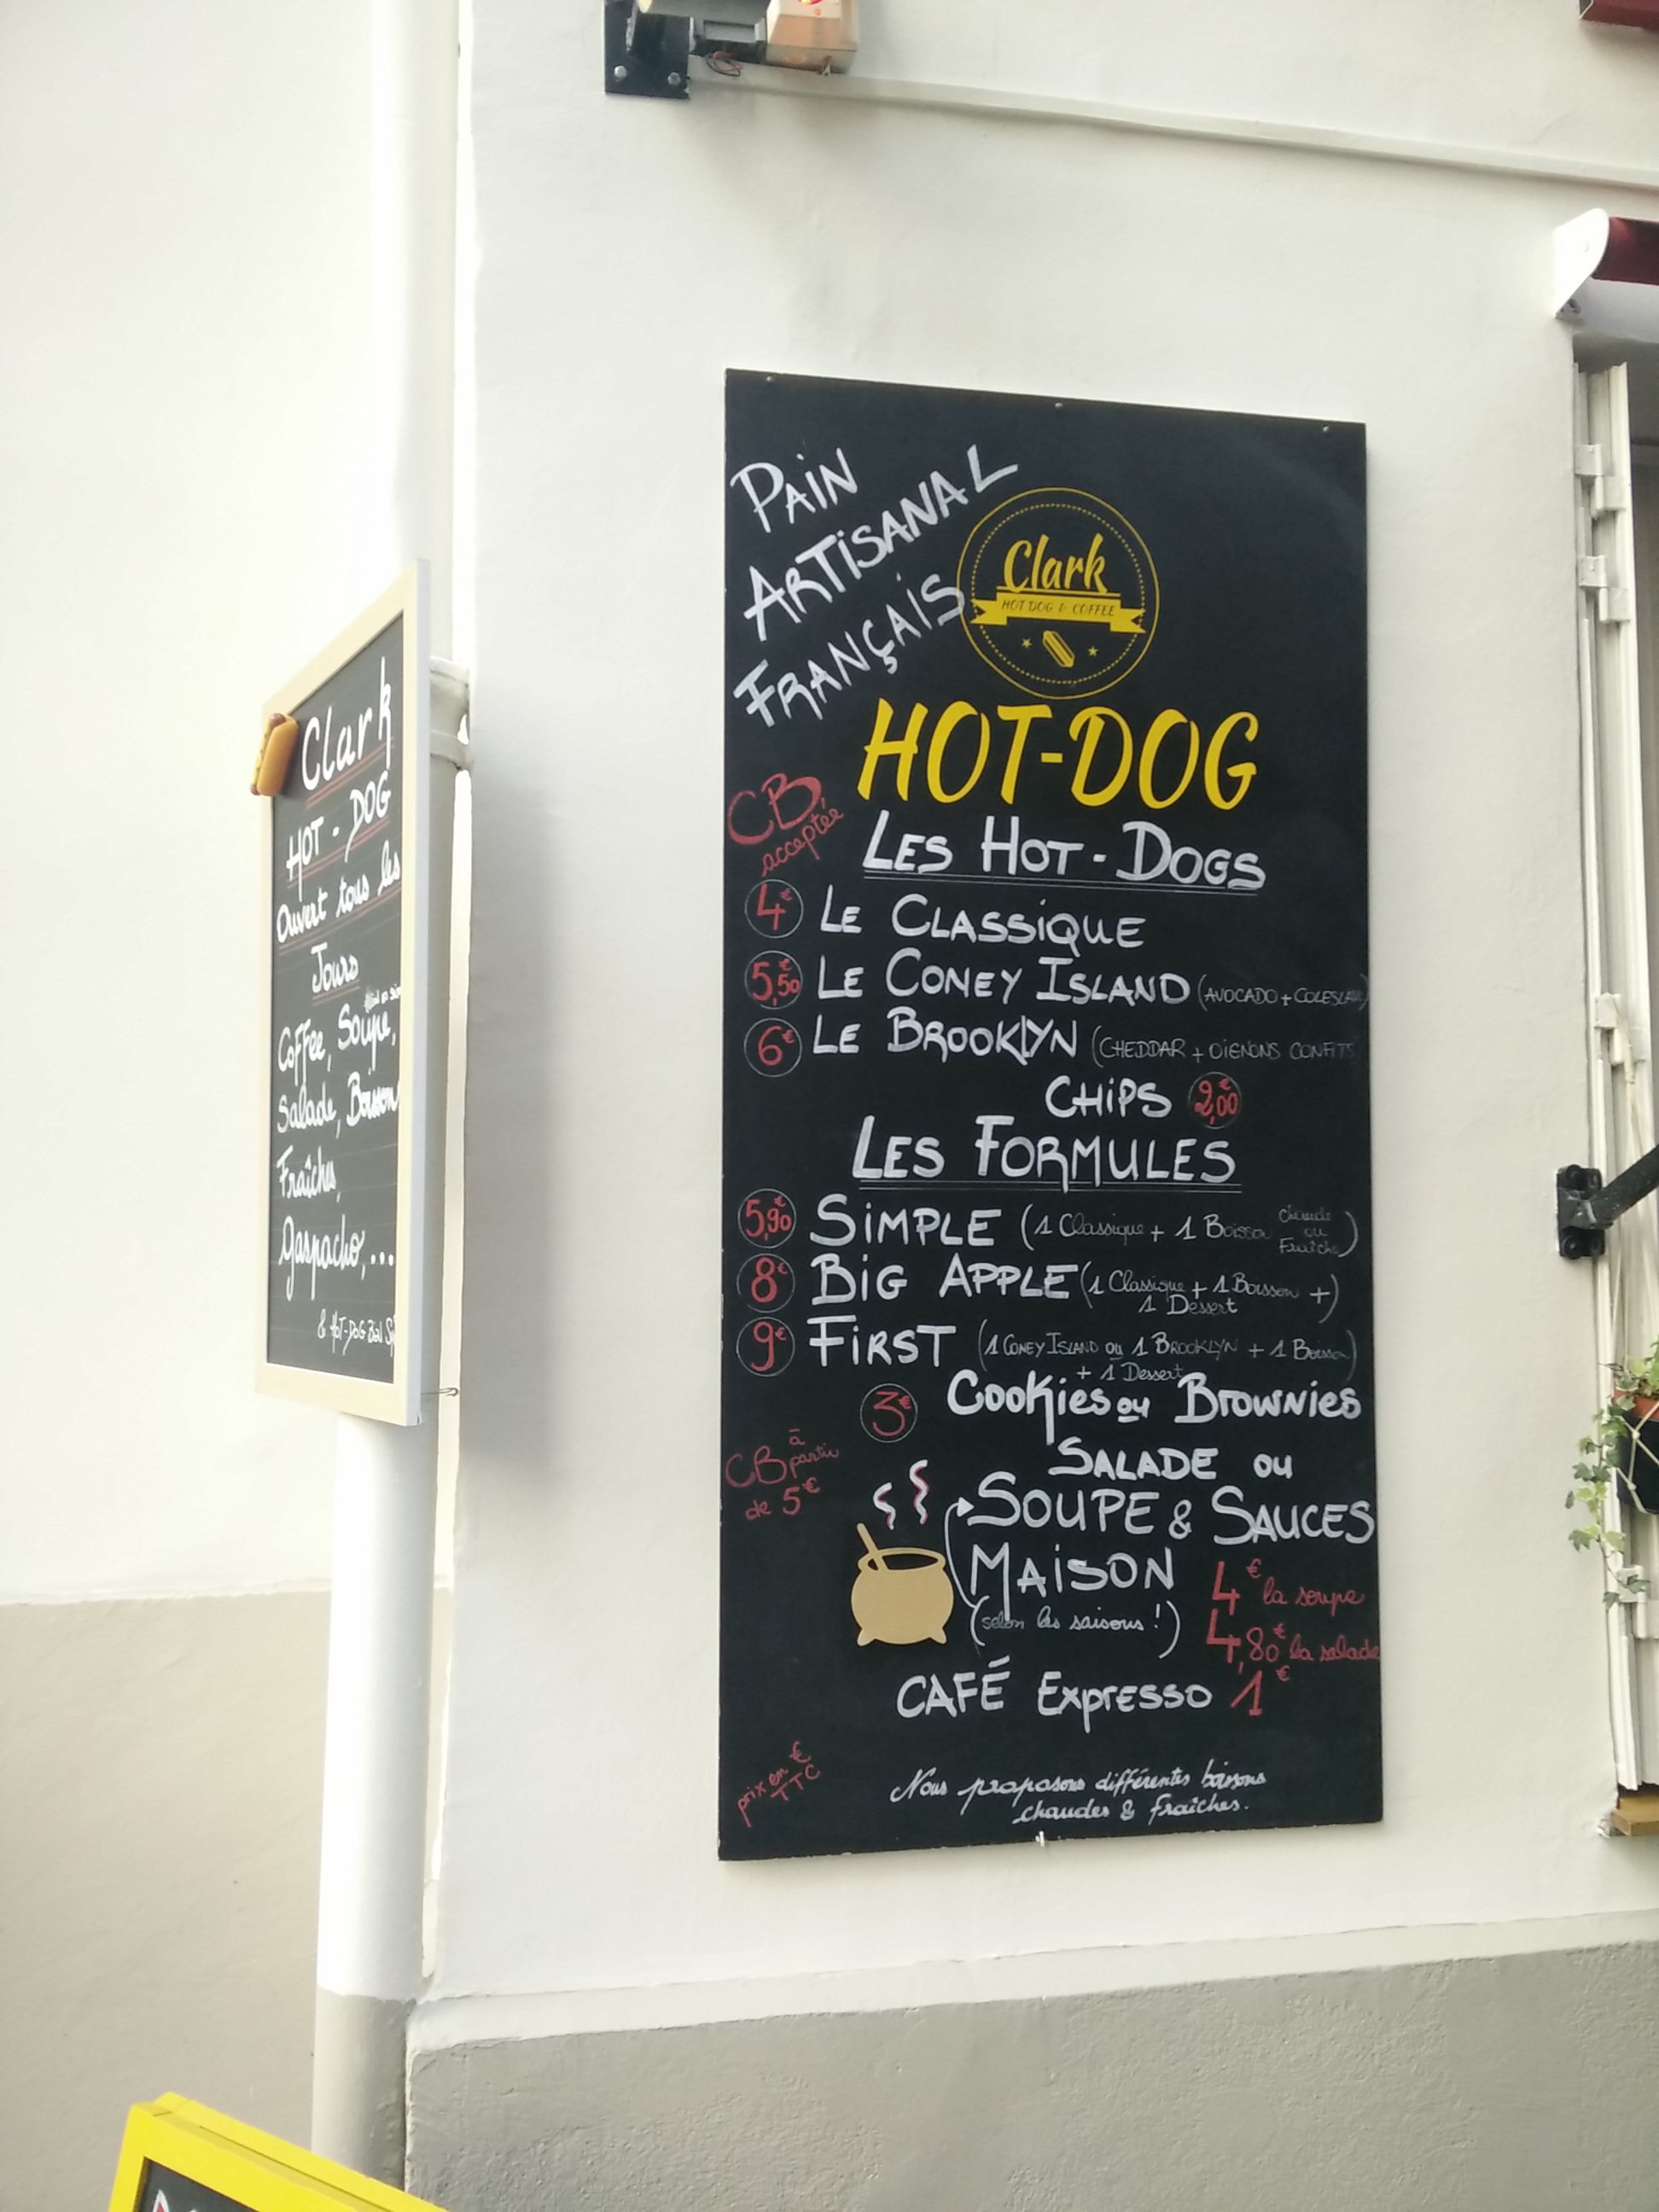 Clark
HOT - DOG
Ouvert tous les
Jours
Coffee, Soupe,
Salade, Boisson
Fraîches,
Gaspacho, ...
& HOT-DOG
PAIN
ARTISANAL
FRANÇAIS
Clark
HOT DOG & COFFEE
HOT-DOG
CB
acceptée
LES HOT-DOGS
4€ LE CLASSIQUE
5,50€ LE CONEY ISLAND (AVOCADO + COLESLAW)
6€ LE BROOKLYN (CHEDDAR + OIGNONS CONFITS
CHIPS 2,00€
LES FORMULES
5,90€ SIMPLE (1 Classique + 1 Boisson chaude ou Fraîche)
8€ BIG APPLE (1 Classique + 1 Boisson +)
1 Dessert
9€ FIRST (1 CONEY ISLAND ou 1 BROOKLYN + 1 Boisson)
+ 1 Dessert
3€ Cookies ou Brownies
CB à partir
de 5€
SALADE ou
SOUPE & SAUCES
MAISON
(selon les saisons !)
4€ la soupe
4,80€ la salade
CAFÉ Expresso 1€
prix en €
TTC
Nous proposons différentes boissons
chaudes & fraîches.